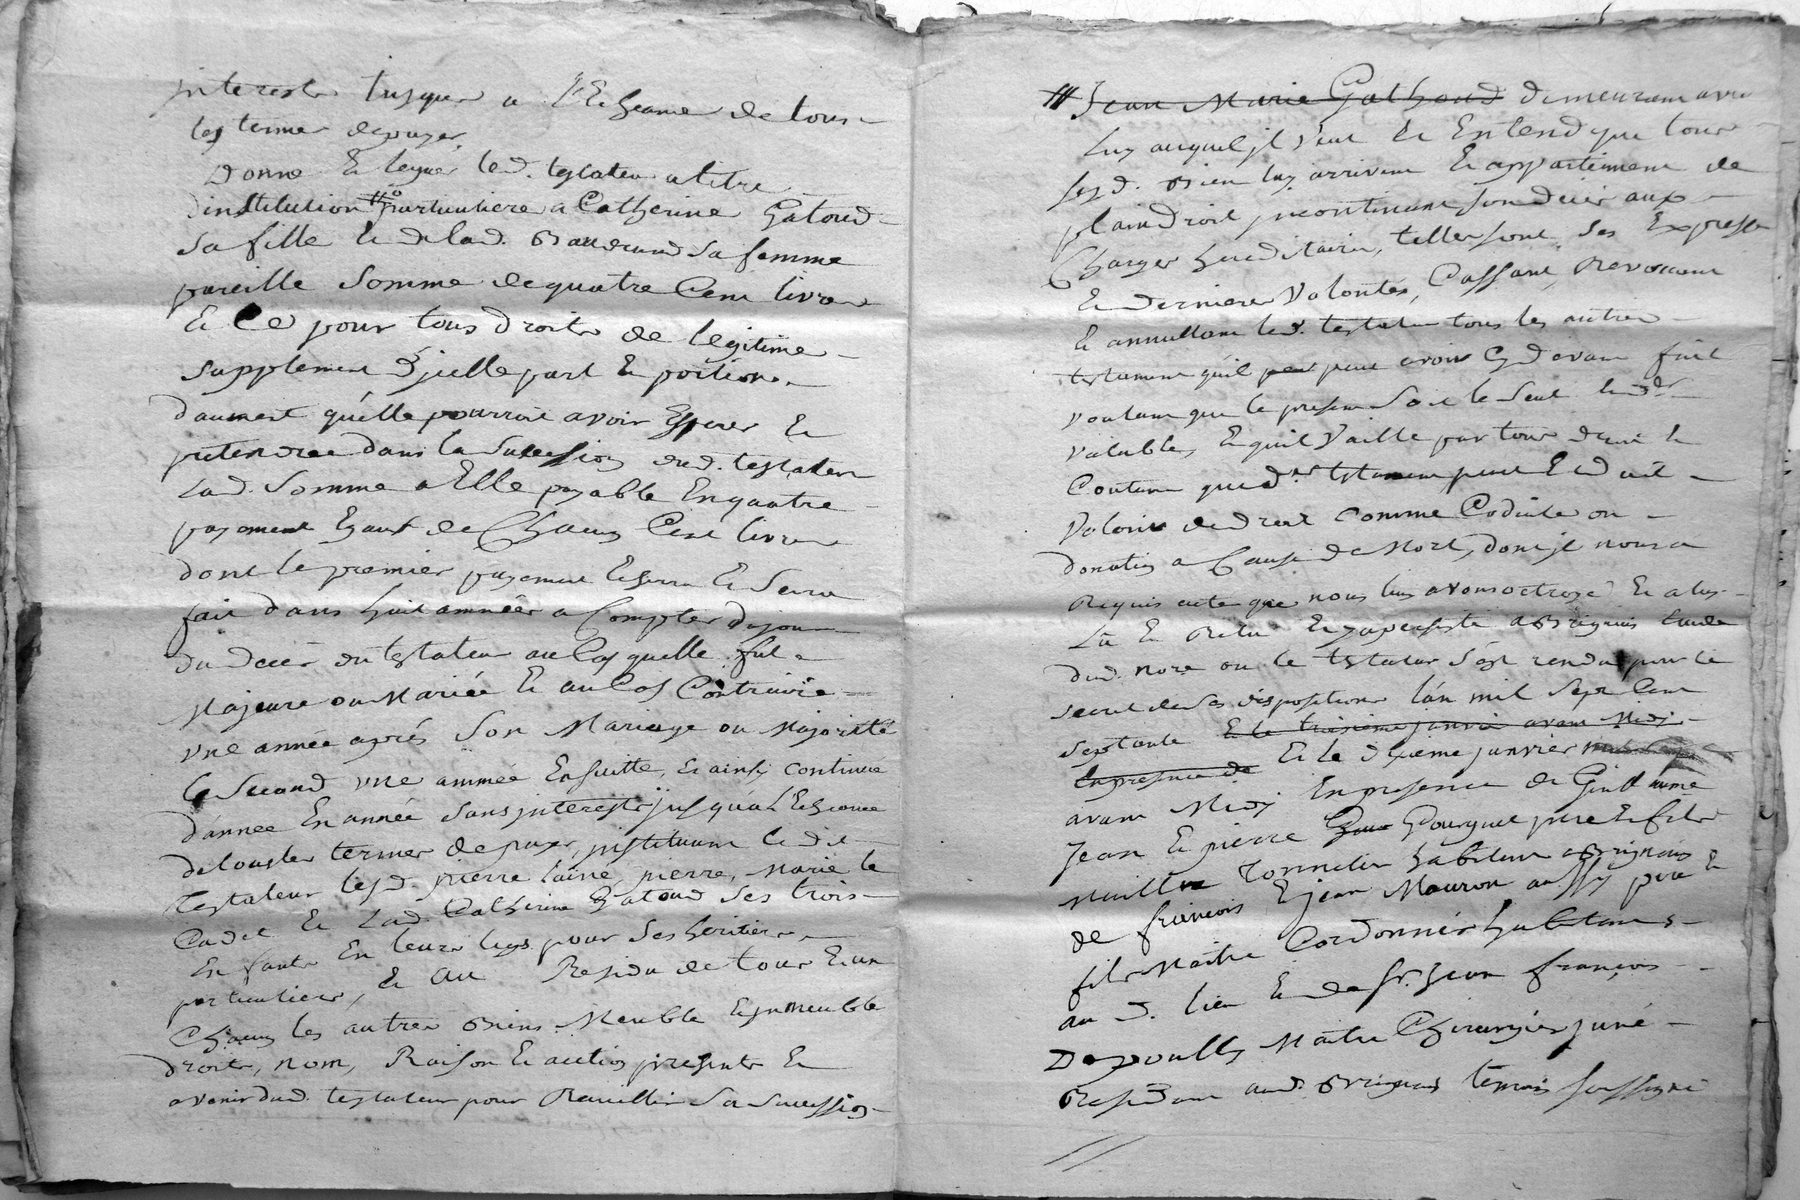 interests Jusques a l'Echeance de tous
les termes depayer,
Donne Et legue led. testateur atitre
dinstitution particuliere a Catherine Gatoud
sa fille Et delad. Bauerand sa femme
pareille Somme dequatre Cent livres
Et Ce pour tous droits de legitime
Supplement D'jcelle part Et portions
daument qu'elle pourroit avoir Esperer Et
pretendre dans la Succession dud. testateur
Lad. Somme a Elle payable Enquatre
payement Egaux de Chacun Cent livres
dont le premier payement Echerra Et Sera
fait dans huit années a Compter dujour
du deces du testateur au Cas quelle fut
Majeure ou Mariée Et au Cas Contraire
une année aprés Son Mariage ou Majorité
le Second une année Ensuitte, Et ainsy continué
d'année En année Sans interests jusqu'a L'Echeance
detous les termes depayer, jnstituant le dit
testateur lesd. pierre l'ainé, pierre, Marie le
Cadet Et Lad. Catherine Gatoud Ses trois
Enfants En leurs legs pour Ses heritiers
particuliers, Et Au Residu de tous Et un
Chacun les autres Biens Meuble Et jmmeuble
droits, nom, Raison Et action presents Et
avenir dud. testateur pour Recueillir Sa Succession
Jean Marie Gathoud demeurant avec
Luy auquel jl veut Et Entend que tous
sesd. Biens luy arrivent Et appartiennent de
plain droit jncontinent Son deces aux
Charges hereditaires, telles sont Ses Expresses
Et dernieres Volontés, Cassant, Revocant
Et annullant led. testateur tous les autres
testament qu'il peut avoir Cy devant fait
voulant que le present Soit le Seul
valable, Et qu'il Vaille par tout droit Et
Coutume que dr. testament peut Et doit
Valoir de droit comme Codicile ou
donation a Cause de Mort, dont jl nous a
Requis acte que nous luy avons octroyé Et aluy
Lû Et Relu Et ya persisté a Brignais Etude
dud. nore ou le testateur s'est rendu pour le
secret de Ses dispositions l'an mil Sept Cent
Septante Et le troisieme janvier avant Midi
En presence de Et le dixieme janvier
avant Midy En presence de Guillaume
Jean Et pierre Gourguet pere Et fils
Tonnelier habitant a Brignais
de francois Et jean Mouron aussy pere Et
fils Maitre Cordonnier habitans
au d. lieu Et de Sr. Jean françois
Dapoully Maitre Chirurgien juré
Residant aud. Brignais temoins soussigné